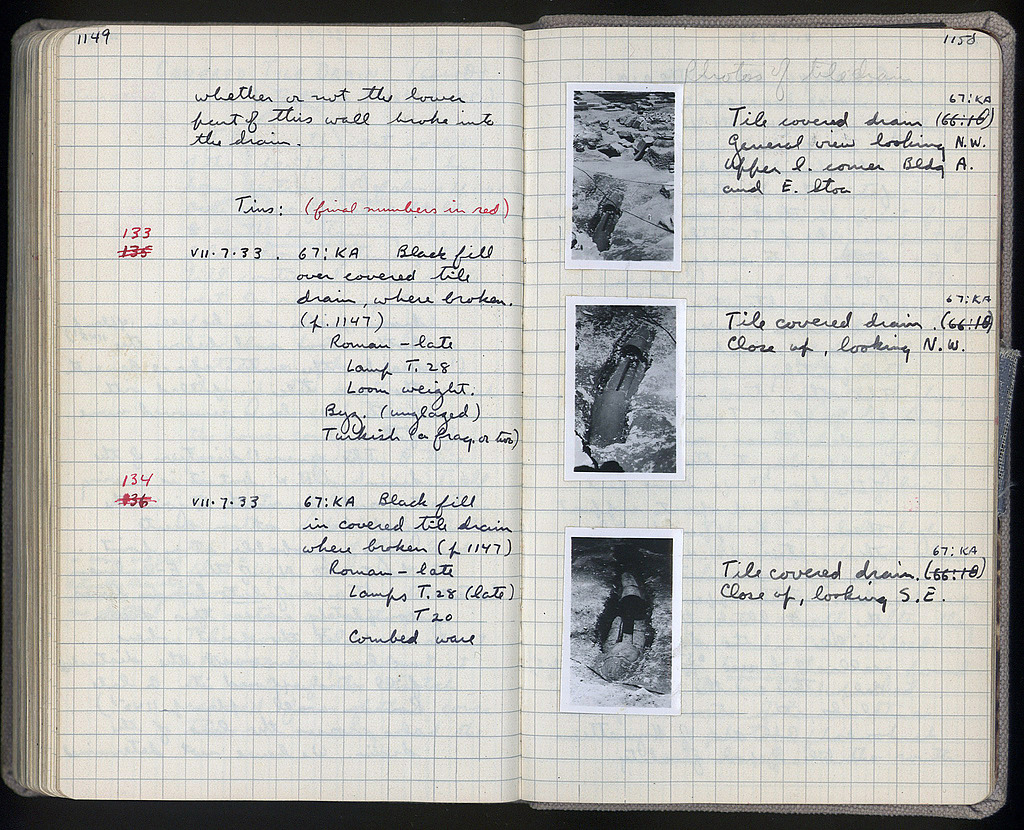 1149
whether or not the lower
part of this wall broke into
the drain.
Tins: (final numbers in red)
133
135
VII.7.33. 67:KA Black fill
over covered tile
drain, where broken.
(p. 1147)
Roman - late
Lamp T. 28
Loom weight.
Byz. (unglazed)
Turkish (a frag. or two)
134
136
VII.7.33 67:KA Black fill
in covered tile drain
where broken (p 1147)
Roman - late
Lamps T. 28 (late)
T 20
Combed ware
1150
Photos of tile drain
67:KA
Tile covered drain (66:18)
General view looking N.W.
Upper l. corner Bldg A.
and E. Stoa
67:KA
Tile covered drain. (66:18)
Close up, looking N.W.
67:KA
Tile covered drain. (66:18)
Close up, looking S.E.